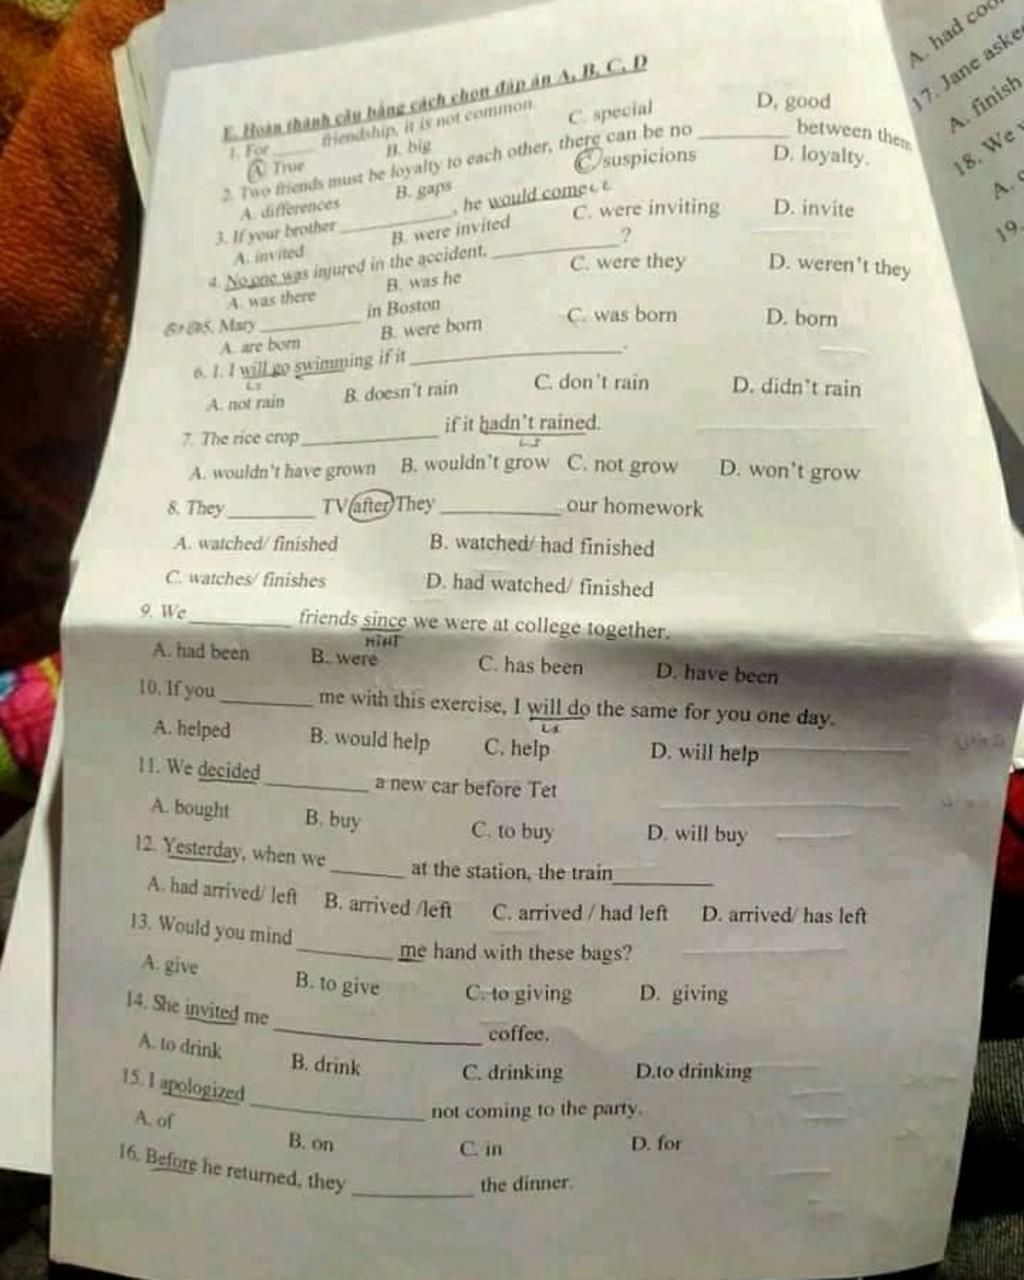 E. Hoàn thành câu bằng cách chọn đáp án A, B, C, D
1. For _____ friendship, it is not common.
A. True B. big C. special D. good
2. Two friends must be loyalty to each other, there can be no _________ between them
A. differences B. gaps C. suspicions D. loyalty.
3. If your brother ___________, he would come
A. invited B. were invited C. were inviting D. invite
4. No one was injured in the accident, _____________?
A. was there B. was he C. were they D. weren't they
5. Mary __________ in Boston
A. are born B. were born C. was born D. born
6. 1. I will go swimming if it _____________________.
L1
A. not rain B. doesn't rain C. don't rain D. didn't rain
7. The rice crop _____________ if it hadn't rained.
L3
A. wouldn't have grown B. wouldn't grow C. not grow D. won't grow
8. They _________ TV after They ____________ our homework
A. watched/ finished B. watched/ had finished
C. watches/ finishes D. had watched/ finished
9. We __________ friends since we were at college together.
HTHT
A. had been B. were C. has been D. have been
10. If you _________ me with this exercise, I will do the same for you one day.
L1
A. helped B. would help C. help D. will help
11. We decided __________ a new car before Tet
A. bought B. buy C. to buy D. will buy
12. Yesterday, when we _______ at the station, the train__________
A. had arrived/ left B. arrived /left C. arrived / had left D. arrived/ has left
13. Would you mind _________ me hand with these bags?
A. give B. to give C. to giving D. giving
14. She invited me ____________________ coffee.
A. to drink B. drink C. drinking D.to drinking
15. I apologized _________________ not coming to the party.
A. of B. on C. in D. for
16. Before he returned, they ____________ the dinner.
A. had
17. Jane aske
A. finish
18. We
A.
19.